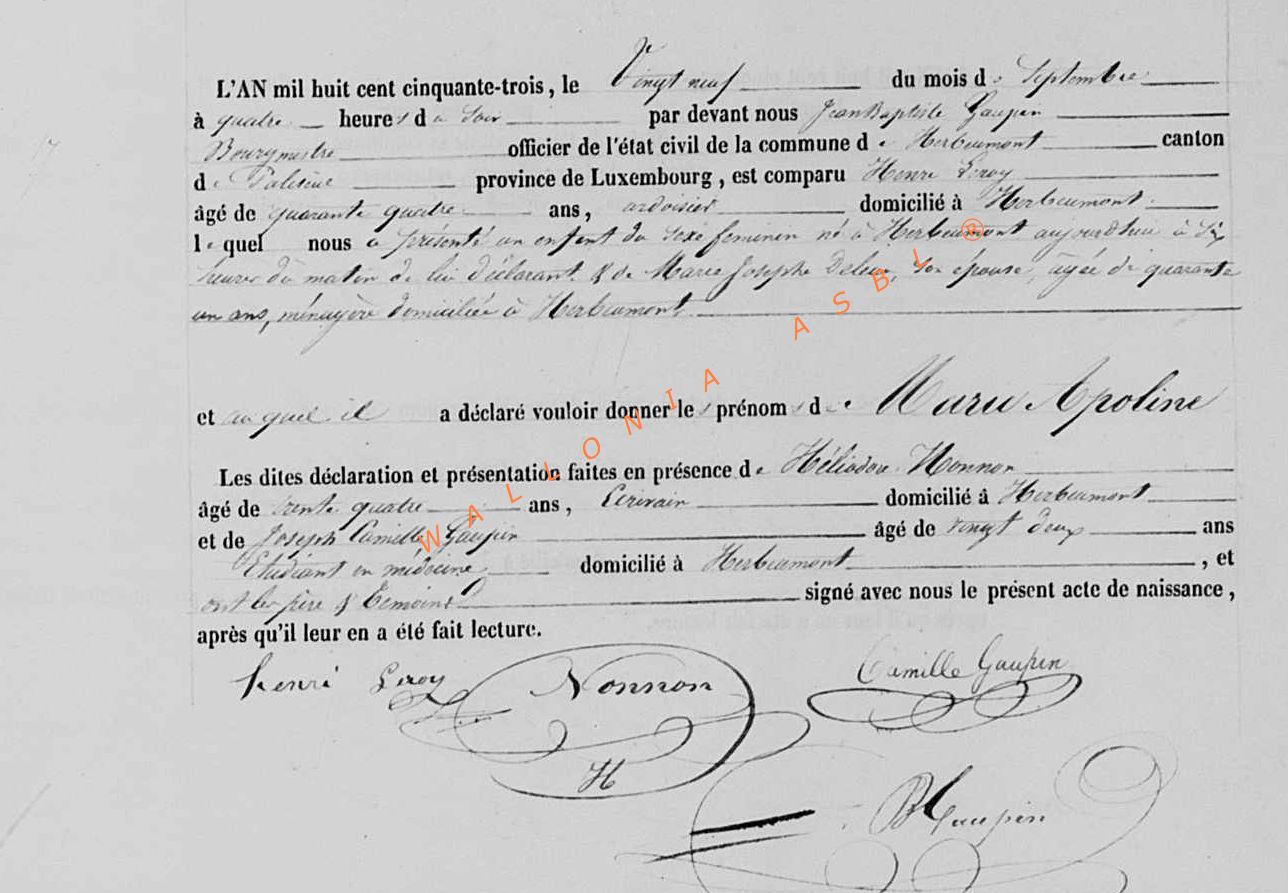 L'AN mil huit cent cinquante-trois, le Vingt neuf du mois de Septembre
à quatre heures du Soir par devant nous Jean Baptiste Gaupin
Bourgmestre officier de l'état civil de la commune de Herbeumont canton
de Paliseul province de Luxembourg, est comparu Henri Leroy
âgé de quarante quatre ans, ardoisier domicilié à Herbeumont
lequel nous a présenté un enfant du sexe feminin né à Herbeumont aujourd'hui à Six
heures du matin de lui déclarant & de Marie Josephe son épouse, agée de quarante
un ans, ménagère domiciliée à Herbeumont
et auquel il a déclaré vouloir donner les prénoms de Marie Apoline
Les dites déclaration et présentation faites en présence de Héliodore Nonnon
âgé de trente quatre ans, Ecrivain domicilié à Herbeumont
et de Joseph Camille Gaupin âgé de vingt deux ans
Etudiant en médecine domicilié à Herbeumont, et
ont les père & témoins signé avec nous le présent acte de naissance,
après qu'il leur en a été fait lecture.
henri Leroy Nonnon Camille Gaupin
H
Gaupin
WALLONIA ASBL ®